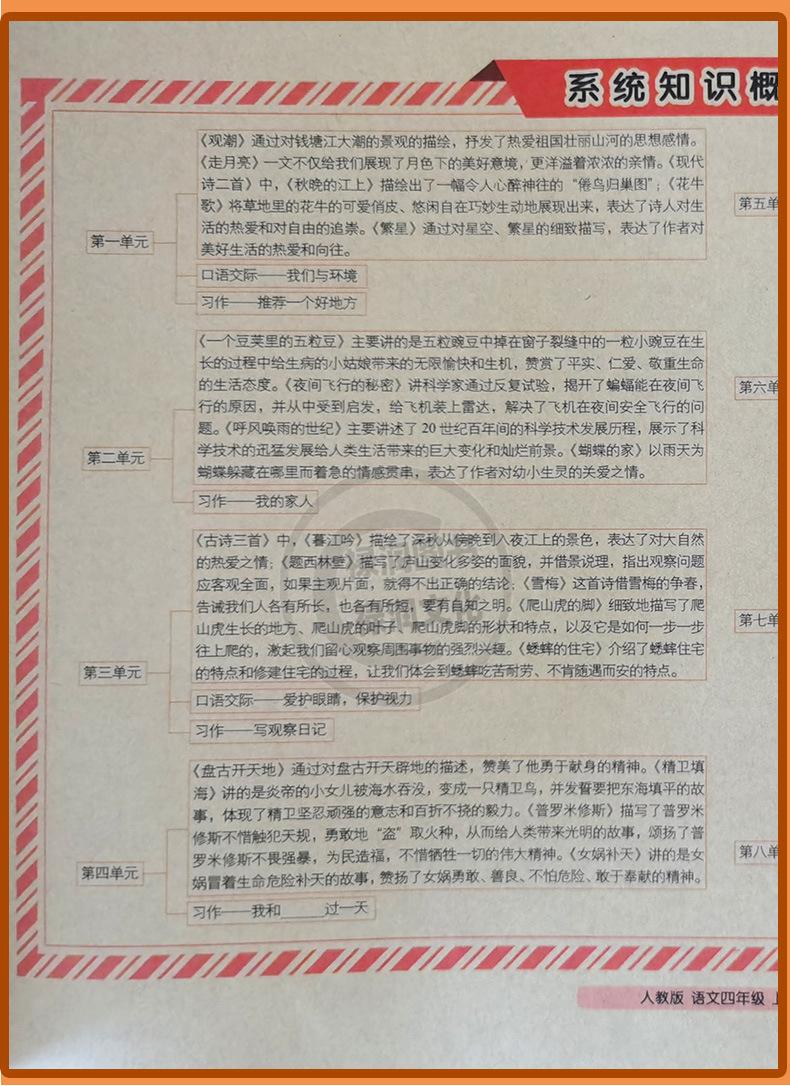 系统知识概
《观潮》通过对钱塘江大潮的景观的描绘，抒发了热爱祖国壮丽山河的思想感情。
《走月亮》一文不仅给我们展现了月色下的美好意境，更洋溢着浓浓的亲情。《现代
诗二首》中，《秋晚的江上》描绘出了一幅令人心醉神往的“倦鸟归巢图”；《花牛
歌》将草地里的花牛的可爱俏皮、悠闲自在巧妙生动地展现出来，表达了诗人对生
活的热爱和对自由的追崇。《繁星》通过对星空、繁星的细致描写，表达了作者对
美好生活的热爱和向往。
第一单元
口语交际——我们与环境
习作——推荐一个好地方
《一个豆荚里的五粒豆》主要讲的是五粒豌豆中掉在窗子裂缝中的一粒小豌豆在生
长的过程中给生病的小姑娘带来的无限愉快和生机，赞赏了平实、仁爱、敬重生命
的生活态度。《夜间飞行的秘密》讲科学家通过反复试验，揭开了蝙蝠能在夜间飞
行的原因，并从中受到启发，给飞机装上雷达，解决了飞机在夜间安全飞行的问
题。《呼风唤雨的世纪》主要讲述了20世纪百年间的科学技术发展历程，展示了科
学技术的迅猛发展给人类生活带来的巨大变化和灿烂前景。《蝴蝶的家》以雨天为
蝴蝶躲藏在哪里而着急的情感贯串，表达了作者对幼小生灵的关爱之情。
第二单元
习作——我的家人
《古诗三首》中，《暮江吟》描绘了深秋从傍晚到入夜江上的景色，表达了对大自然
的热爱之情；《题西林壁》描写了庐山变化多姿的面貌，并借景说理，指出观察问题
应客观全面，如果主观片面，就得不出正确的结论；《雪梅》这首诗借雪梅的争春，
告诫我们人各有所长，也各有所短，要有自知之明。《爬山虎的脚》细致地描写了爬
山虎生长的地方、爬山虎的叶子、爬山虎脚的形状和特点，以及它是如何一步一步
往上爬的，激起我们留心观察周围事物的强烈兴趣。《蟋蟀的住宅》介绍了蟋蟀住宅
的特点和修建住宅的过程，让我们体会到蟋蟀吃苦耐劳、不肯随遇而安的特点。
第三单元
口语交际——爱护眼睛，保护视力
习作——写观察日记
《盘古开天地》通过对盘古开天辟地的描述，赞美了他勇于献身的精神。《精卫填
海》讲的是炎帝的小女儿被海水吞没，变成一只精卫鸟，并发誓要把东海填平的故
事，体现了精卫坚忍顽强的意志和百折不挠的毅力。《普罗米修斯》描写了普罗米
修斯不惜触犯天规，勇敢地“盗”取火种，从而给人类带来光明的故事，颂扬了普
罗米修斯不畏强暴，为民造福，不惜牺牲一切的伟大精神。《女娲补天》讲的是女
娲冒着生命危险补天的故事，赞扬了女娲勇敢、善良、不怕危险、敢于奉献的精神。
第四单元
习作——我和______过一天
第五单
第六单
第七单
第八单
人教版 语文四年级 上